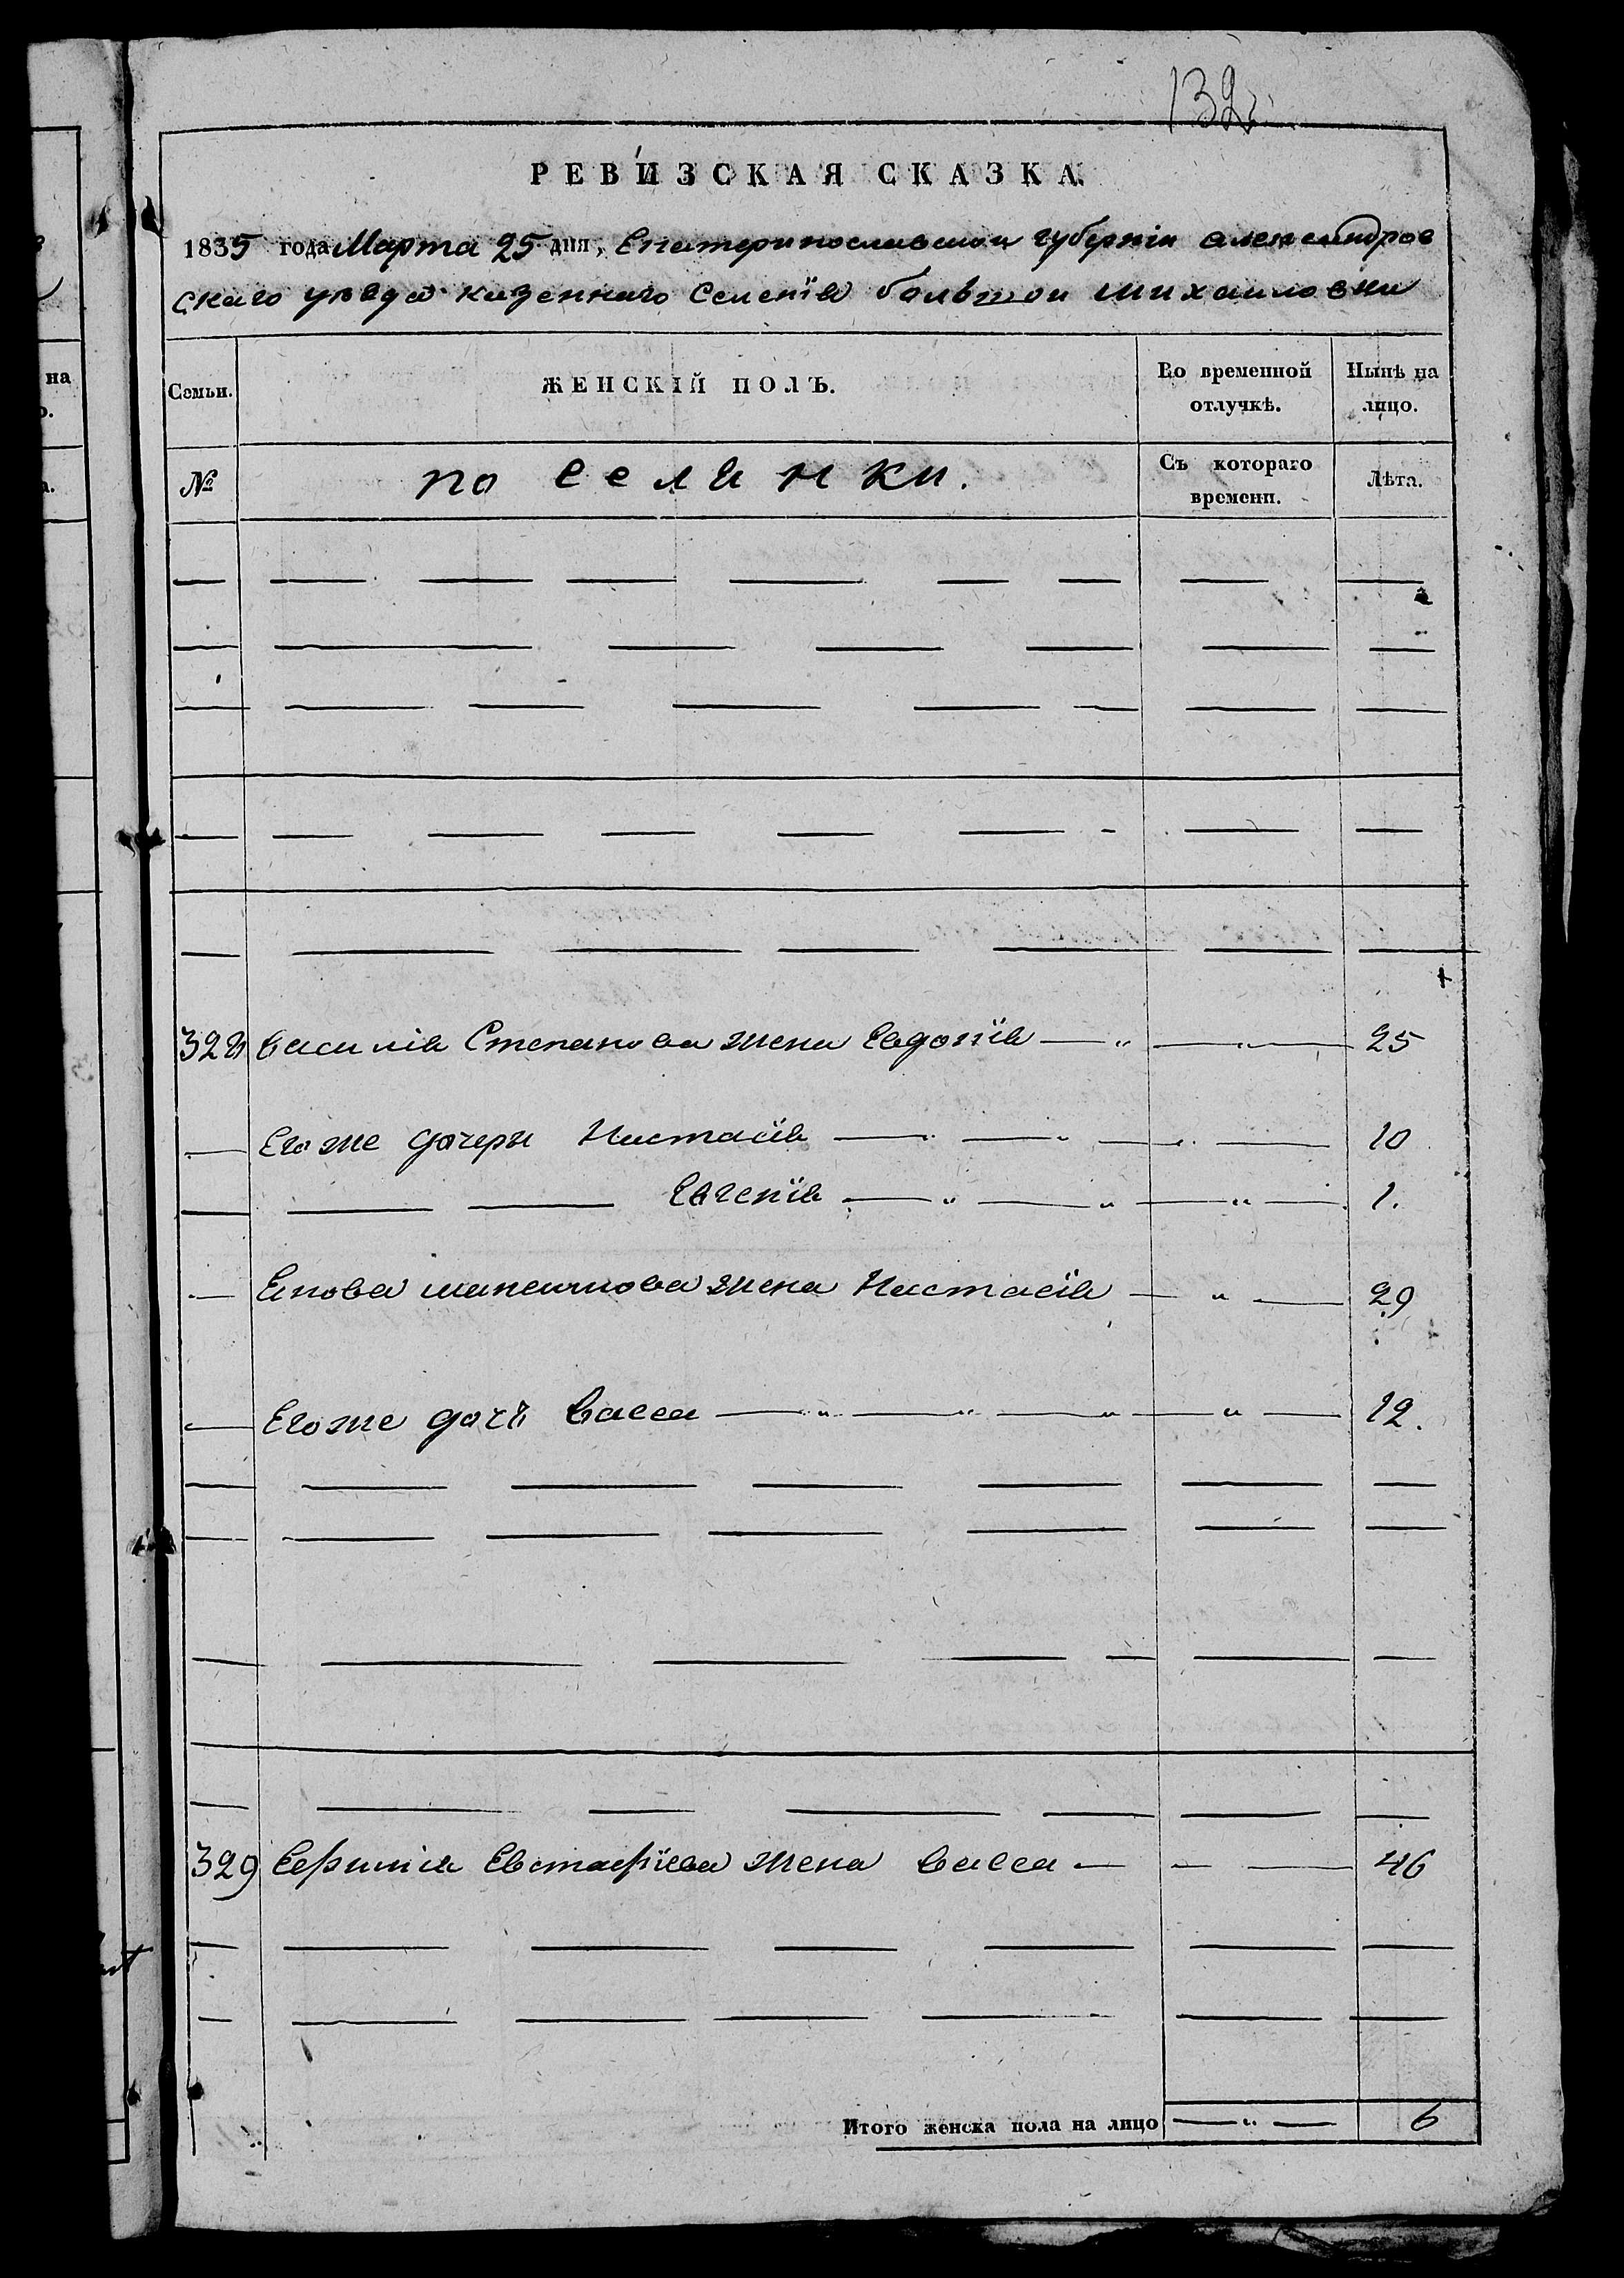 132
РЕВИЗСКАЯ СКАЗКА.
1835 года Марта 25 дня, Екатеринославской губернiи александров
скаго уезда казеннаго Селенiя большой михаиловки
Семьи.
ЖЕНСКІЙ ПОЛЪ.
Во временной отлучкѣ.
Нынѣ на лицо.
№
поселянки.
Съ котораго времени.
Лѣта.
328 василiя Степанова жена Евдокiя — " — " — 25
— Егоже дочери Настасiя — " — " — 10
— Евгенiя — " — " — " — 1.
— жена Настасiя — " — 29
— Егоже дочь Васса — " — " — " — " — 12.
329 Ефимiя Евстафiева жена Васса — 46
Итого женска пола на лицо — " — 6